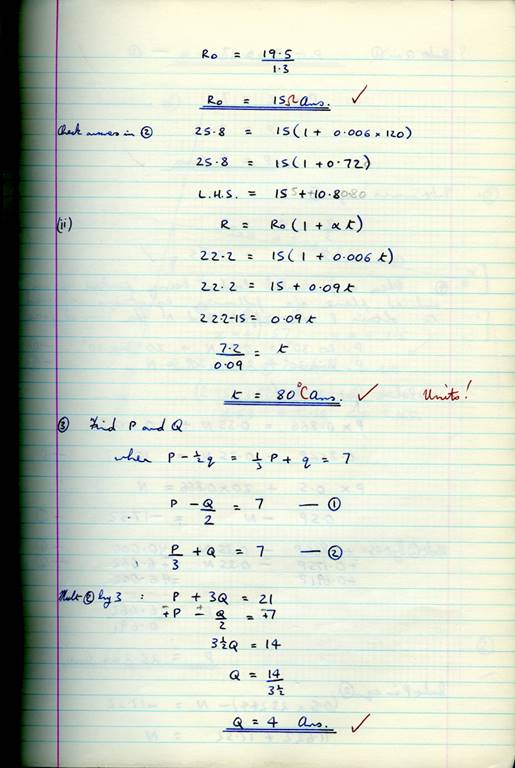 R₀ = 19.5
1.3
R₀ = 15Ω Ans. ✓
Check answers in ② 25.8 = 15(1 + 0.006 x 120)
25.8 = 15(1 + 0.72)
L.H.S. = 15 + 10.8
(ii) R = R₀(1 + αt)
22.2 = 15(1 + 0.006 t)
22.2 = 15 + 0.09t
22.2-15 = 0.09t
7.2 = t
0.09
t = 80°C Ans. ✓ Units!
③ Find P and Q
when P - ½q = ⅓P + q = 7
P - Q/2 = 7 — ①
P/3 + Q = 7 — ②
Mult ② by 3 : P + 3Q = 21
P - Q/2 = 7
3½Q = 14
Q = 14
3½
Q = 4 Ans. ✓